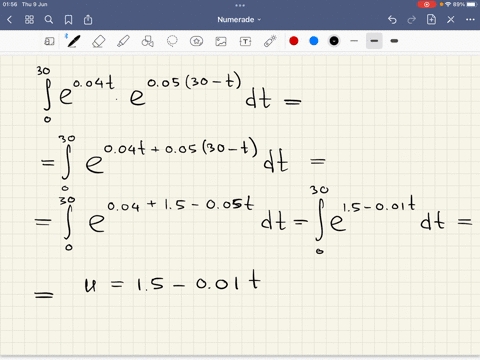 01:56 Thu 9 Jun 89%
Numerade
∫₀³⁰ e^{0.04t} · e^{0.05(30-t)} dt =
= ∫₀³⁰ e^{0.04t + 0.05(30-t)} dt =
= ∫₀³⁰ e^{0.04 + 1.5 - 0.05t} dt = ∫₀³⁰ e^{1.5 - 0.01t} dt =
= u = 1.5 - 0.01t